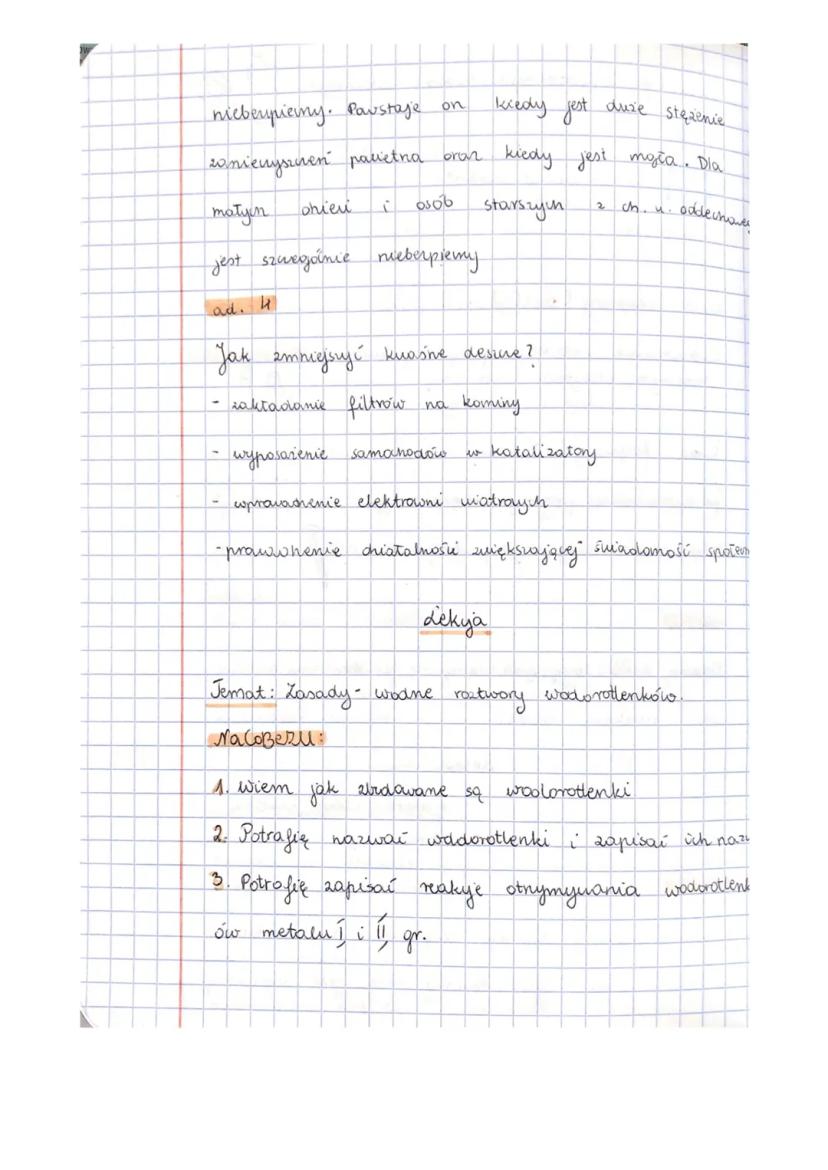 niebezpieczny. Powstaje on kiedy jest duże stężenie
zanieczyszczeń powietrza oraz kiedy jest mgła. Dla
małych dzieci i osób starszych z ch. u. oddechowe
jest szczególnie niebezpieczny
ad. 4
Jak zmniejszyć kwaśne deszcze?
- zakładanie filtrów na kominy
- wyposażenie samochodów w katalizatory
- wprowadzenie elektrowni wiatrowych
- prowadzenie działalności zwiększającej świadomość społecz
Lekcja
Temat: Zasady - wodne roztwory wodorotlenków.
NaCoBeZU:
1. Wiem jak zbudowane są wodorotlenki
2. Potrafię nazwać wodorotlenki i zapisać ich nazw
3. Potrafię zapisać reakcje otrzymywania wodorotlenk
ów metalu I i II gr.